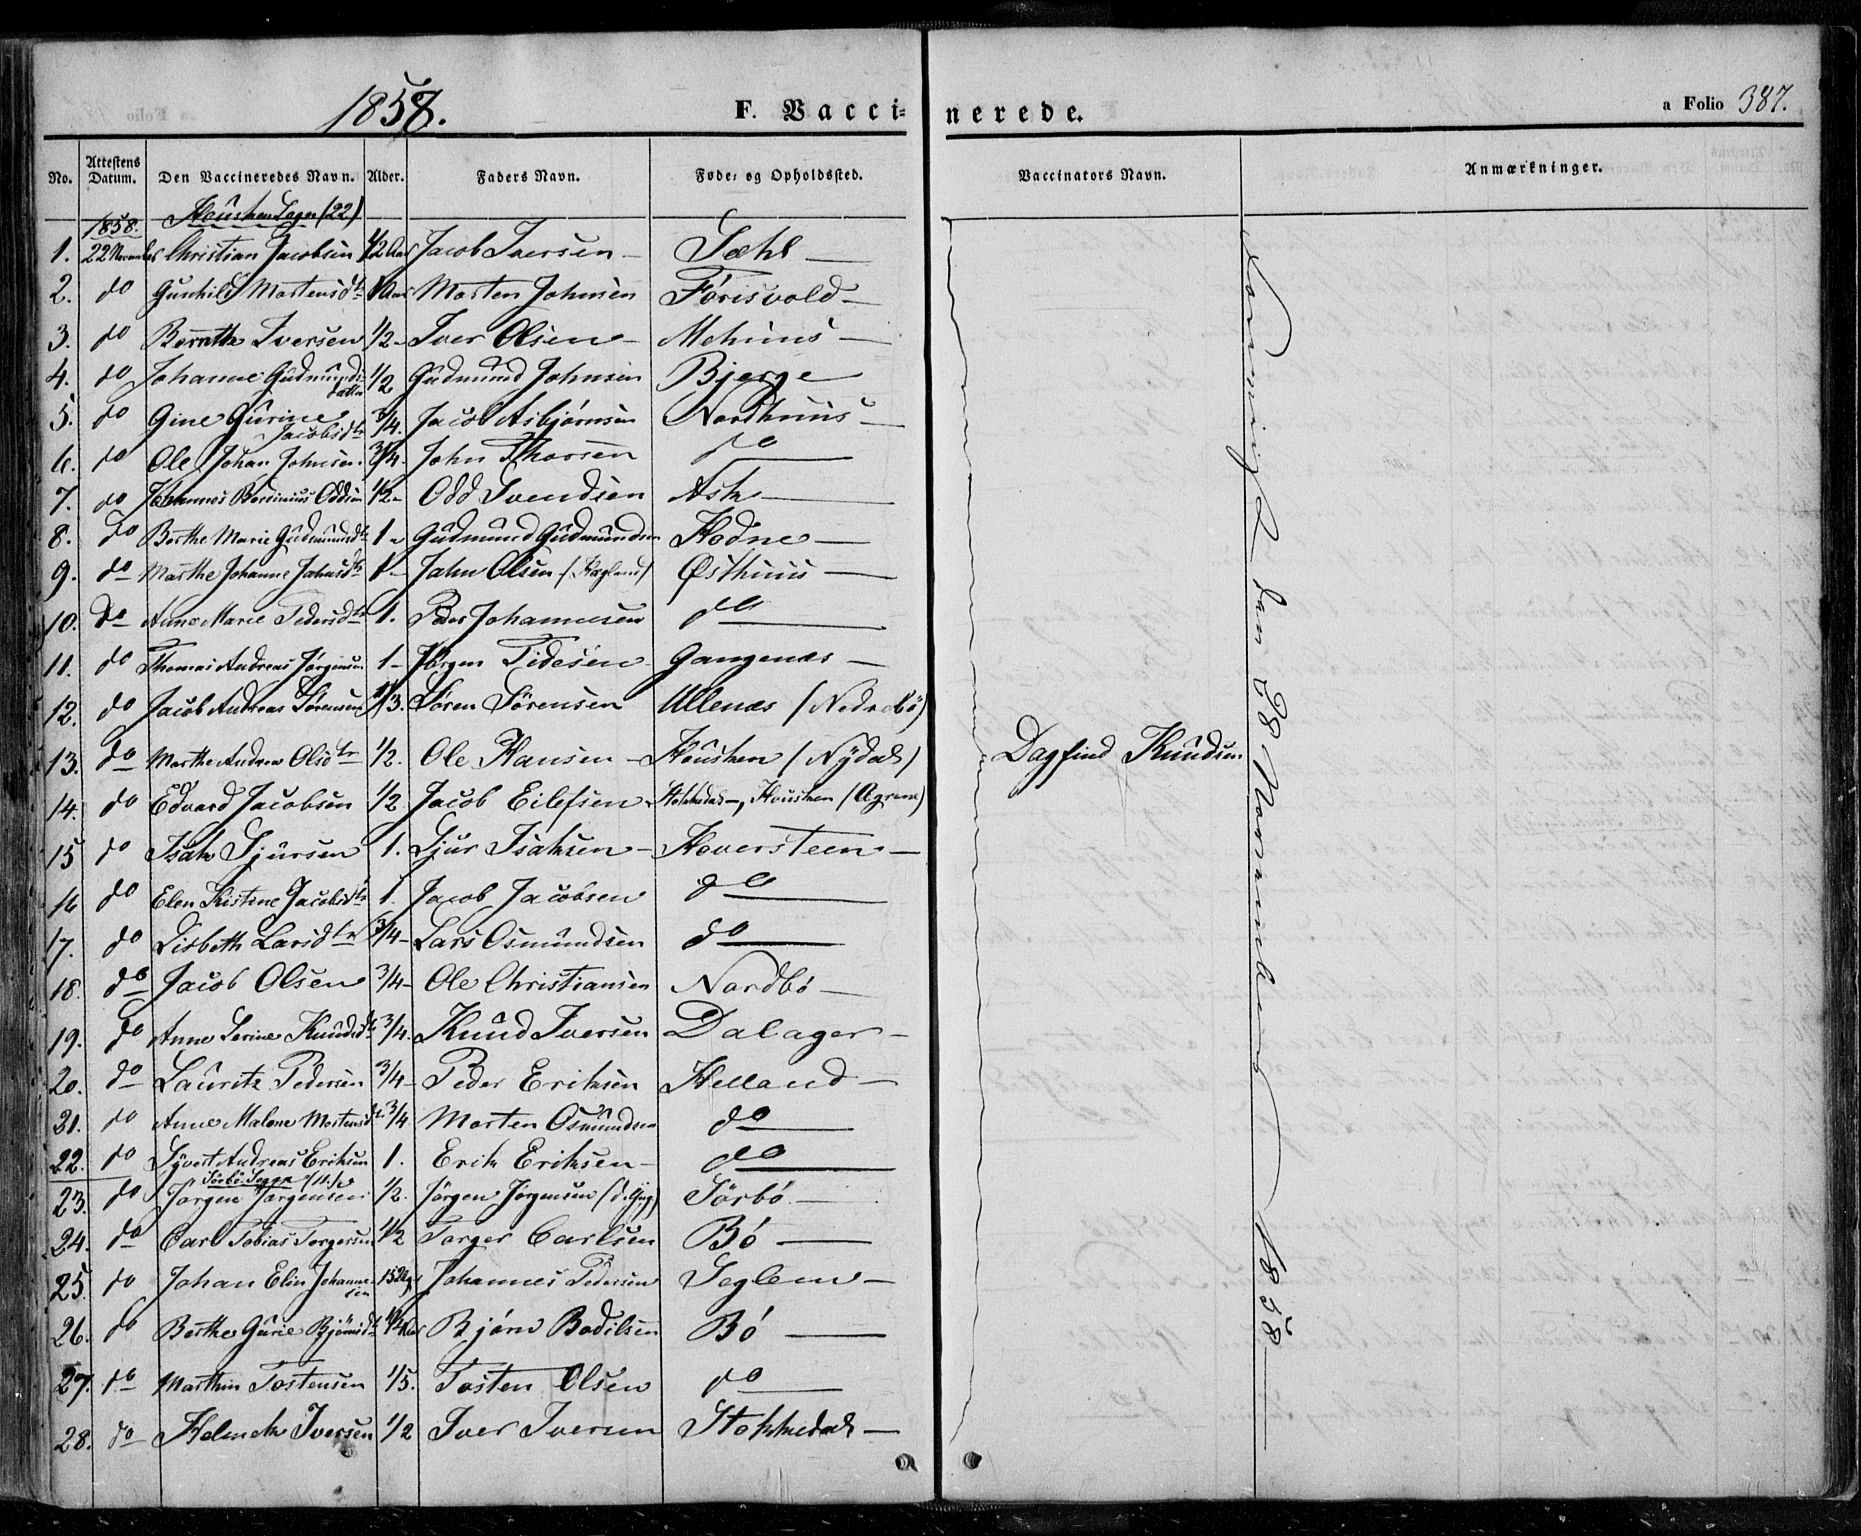 1858.
F. Vaccinerede.
a Folio 387.
No. Attestens Datum. Den Vaccineredes Navn. Alder. Faders Navn. Føde- og Opholdssted. Vaccinators Navn. Anmærkninger.
1858. Houshen Sogn (22)
1. 22 Novembr Christian Jacobsen 1/2 Aar Jacob Iversen — Sæhl —
2. do Gunhild Mortensdtr 1 Aar Morten Johnsen Førisvold —
3. do Berntte Iversen 1/2 — Iver Olsen — Mehuus —
4. do Johanne Gudmundsdatter 1/2 Gudmund Johnsen Bjerge
5. do Gine Gurine Jacobsdtr 3/4. Jacob Asbjørnsen Nordhuus —
6. do Ole Johan Johnsen 3/4. John Thorsen do —
7. do Johannes Berdinius Oddsen 1/2 — Odd Svendsen Ask —
8. do Berthe Marie Gudmundsdtr 1 — Gudmund Gudmundsen Hodne —
9. do Marthe Johanne Johnsdtr 1 — John Olsen — (Hegland) Østhuus —
10. do Anne Marie Pedersdtr 1. Peder Johannesen do —
11. do Thomas Andreas Jørgensen 1 — Jørgen Tidesen Gangenæs —
12. do Jacob Andreas Sörensen 1/3. Sören Sörensen Ullenæs (Nedrebö)
13. do Marthe Andrea Olsdtr 1/2. Ole Hansen — Houshen (Nÿdal)
14. do Edvard Jacobsen 1/2 Jacob Eilefsen — Stokkedal —, Houshen (Agrene)
15 do Isak Sjursen 1. Sjur Isaksen — Hoversteen —
16 do Elen Kistine Jacobsdtr 1. Jacob Jacobsen do —
17. do Lisbeth Larsdtr 3/4 — Lars Osmundsen do —
18. do Jacob Olsen 3/4 — Ole Christiansen Nordbø —
19. do Anne Serine Knudsdtr 3/4. Knud Iversen Dalager —
20. do Lauritz Pedersen 3/4 — Peder Eriksen Helland —
21. do Anne Malene Mortensdtr 3/4 Morten Osmundsen do —
22. do Syvert Andreas Eriksen 1. Erik Eriksen — do —
Sörbö Sogn
23. do Jörgen Jörgensen 1/2. Jörgen Jörgensen (d. Yng) Sörbö —
24. do Carl Tobias Torgersen 1/2 Torger Carlsen Bö —
25. do Johan Elin Johannesen 15 Uger Johannes Pedersen Seglem —
26. do Berthe Gurie Bjørnsdtr 1/2 Aar Bjørn Bodilsen Bö —
27. do Marthin Tostensen 1/5. Tosten Olsen do —
28. do Helmeth Iversen 1/2 Iver Iversen Stokkedal —
Dagfind Knudsen
Rennesø den 28 November 1858